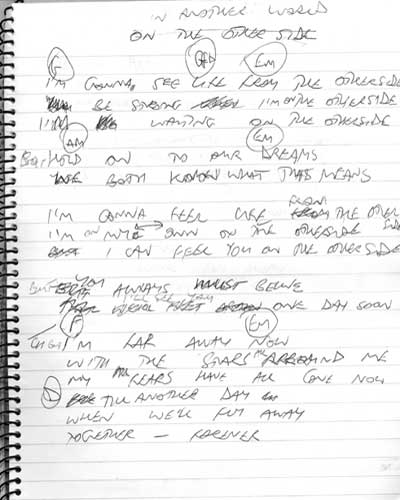 IN ANOTHER WORLD
ON THE OTHER SIDE
G EM
I'M GONNA SEE LIFE FROM THE OTHERSIDE
BE STRONG I'M ON THE OTHERSIDE
I'M WAITING ON THE OTHERSIDE
AM EM
HOLD ON TO OUR DREAMS
WE BOTH KNOW WHAT THAT MEANS
I'M GONNA FEEL LIFE FROM THE OTHER SIDE
I'M ON MY OWN ON THE OTHERSIDE
I CAN FEEL YOU ON THE OTHER SIDE
BUT YOU ALWAYS MUST BELIEVE
ONE DAY SOON
F EM
I'M FAR AWAY NOW
WITH THE STARS ALL AROUND ME
MY FEARS HAVE ALL GONE NOW
D TILL ANOTHER DAY
WHEN WE'LL FLY AWAY
TOGETHER — FOREVER